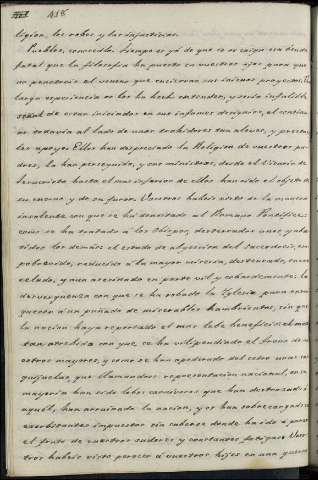 418.
ligion, los robos y las injusticias.
Pueblos, conocedlo: tiempo es yá de que se os caiga esa venda
fatal que la filosofia ha puesto en vuestros ojos para que
no penetreis el veneno que encierran sus iniquos proyectos. Una
larga esperiencia os los ha hecho entender, y seria infalible
señal de estar iniciados en sus infames designios, el continu-
ar todavia al lado de unos trahidores tan aleves, y prestar-
les apoyo. Ellos han despreciado la Religion de vuestros pa-
dres, la han perseguido, y sus ministros, desde el Vicario de
Jesucristo hasta el mas inferior de ellos han sido el objeto de
su encono y de su furor. Vosotros habeis visto de la manera
insolente con que se há denostado al Romano Pontifice:
como se ha tratado á los Obispos, desterrados unos y aba-
tidos los demás: el estado de abyeccion del Sacerdocio, em-
pobrecido, reducido á la mayor miseria, desterrado, encar-
celado, y aun asesinado en parte vil y cobardemente: la
desverguenza con que se ha robado la Iglesia para enri-
quecer á un puñado de miserables hambrientos, sin que
la nacion haya reportado el mas leve beneficio: el
tan atrevida con que se ha vilipendiado el Trono de nu-
estros mayores, y como se han apoderado del cetro unas
que llamandose representacion nacional, en su
mayoria han sido lobos carniceros que han destrozado
aquél, han arruinado la nacion, y os han sobrecargado de
exorbitantes impuestos sin saberse donde ha ido á parar
el fruto de vuestros sudores y constantes fatigas. Voso-
tros habeis visto perecer á vuestros hijos en una guerra